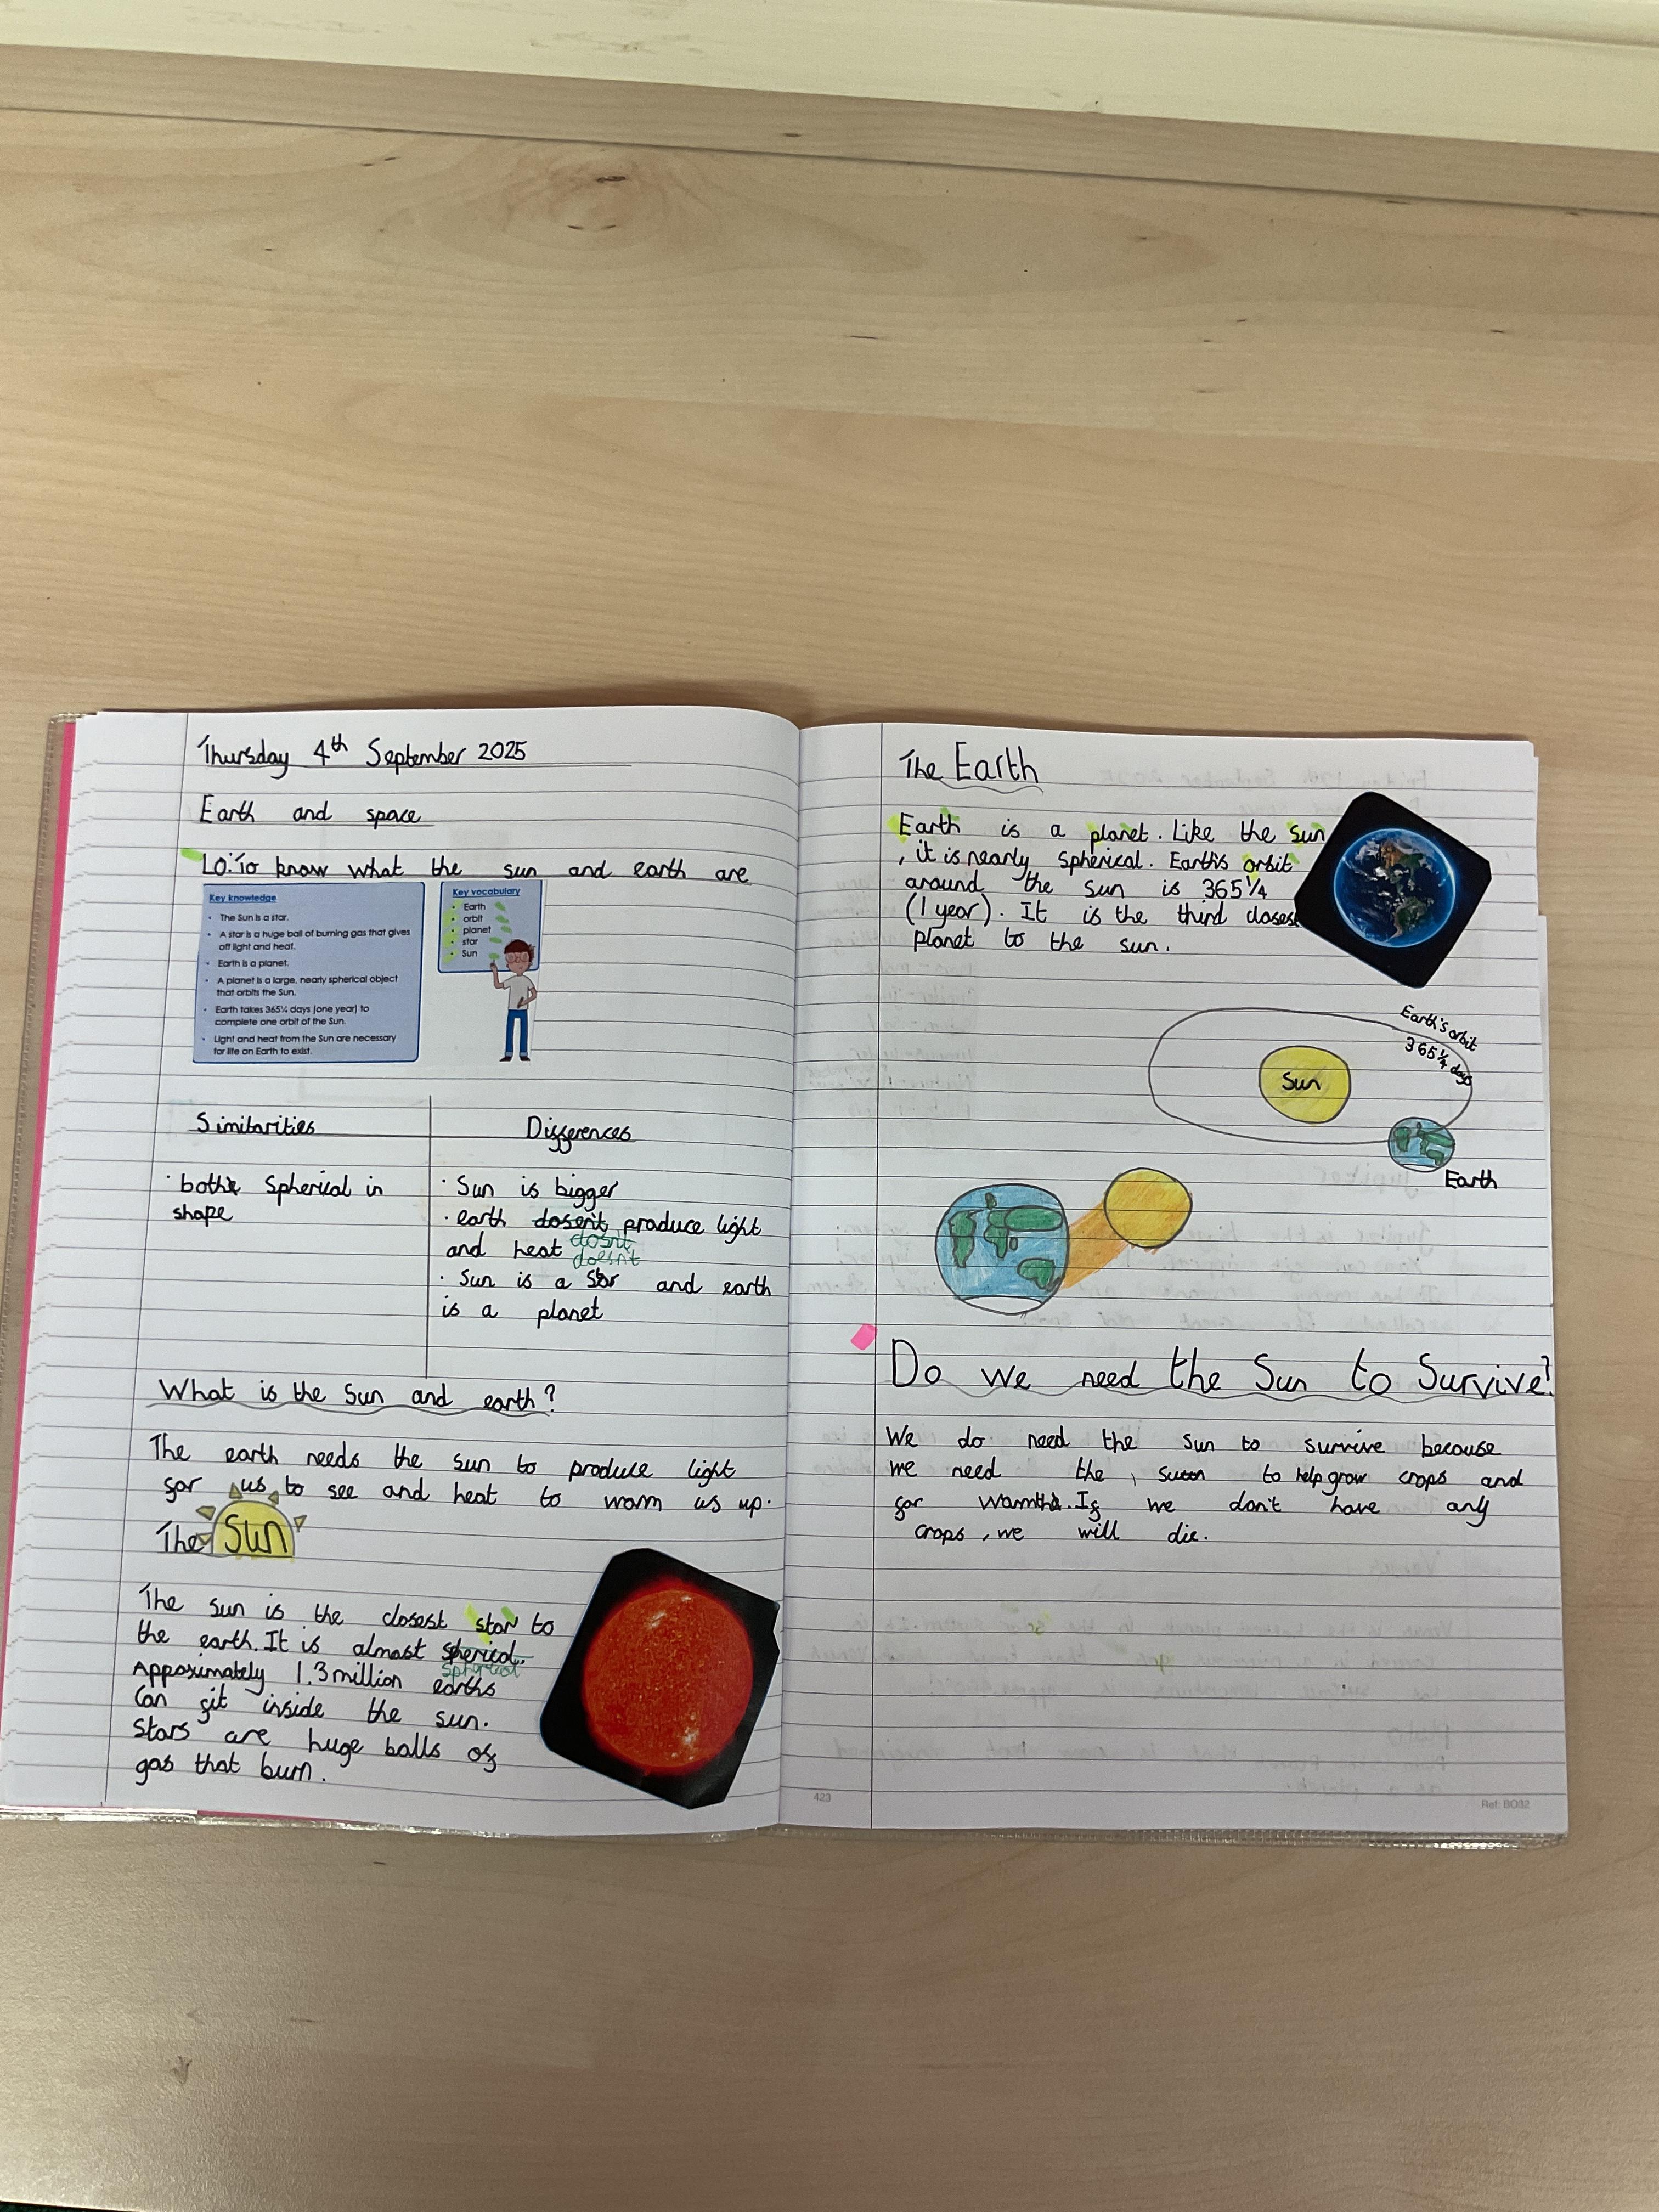 Thursday 4th September 2025
Earth and space
LO: To know what the sun and earth are
Key knowledge
• The Sun is a star.
• A star is a huge ball of burning gas that gives
off light and heat.
• Earth is a planet.
• A planet is a large, nearly spherical object
that orbits the Sun.
• Earth takes 365¼ days (one year) to
complete one orbit of the Sun.
• Light and heat from the Sun are necessary
for life on Earth to exist.
Key vocabulary
• Earth
• orbit
• planet
• star
• Sun
Similarities
· both spherical in
shape
Differences
· Sun is bigger
· earth dosen't produce light
and heat dosn't
doesn't
· Sun is a star and earth
is a planet
What is the Sun and earth?
The earth needs the sun to produce light
for us to see and heat to warm us up.
The Sun
The sun is the closest star to
the earth. It is almost sperical.
spherical
Appoximately 1.3 million earths
can fit inside the sun.
Stars are huge balls of
gas that burn.
The Earth
Earth is a planet. Like the sun
, it is nearly spherical. Earth's orbit
around the sun is 365 1/4
(1 year). It is the third closest
planet to the sun.
Earth's orbit
365 1/4 days
Sun
Earth
Do we need the Sun to Survive?
We do need the sun to survive because
we need the, to help grow crops and
for warmth. If we don't have any
crops, we will die.
423
Ref: BO32